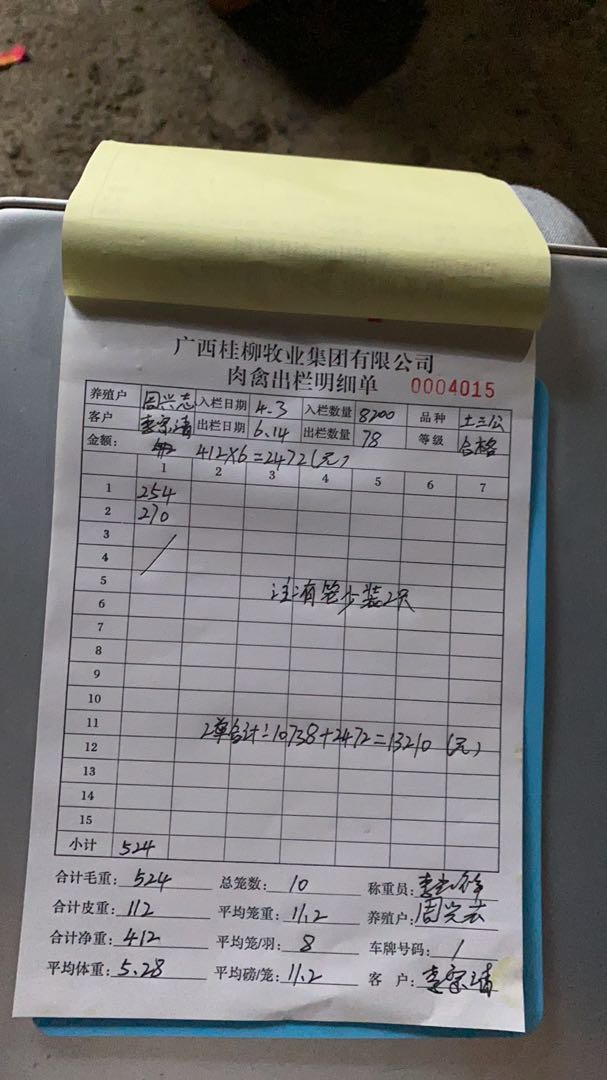 广西桂柳牧业集团有限公司
肉禽出栏明细单 0004015
养殖户 周兴志 入栏日期 4.3 入栏数量 8200 品种 土三公
客户 出栏日期 6.14 出栏数量 78 等级 合格
金额: 412×6=2472(元)
1 2 3 4 5 6 7
1 254
2 270
3
4
5
注:有笼少装2只
6
7
8
9
10
11 2单合计:10738+2472=13210(元)
12
13
14
15
小计 524
合计毛重: 524 总笼数: 10 称重员:
合计皮重: 112 平均笼重: 11.2 养殖户: 周兴志
合计净重: 412 平均笼/羽: 8 车牌号码: /
平均体重: 5.28 平均磅/笼: 11.2 客 户: